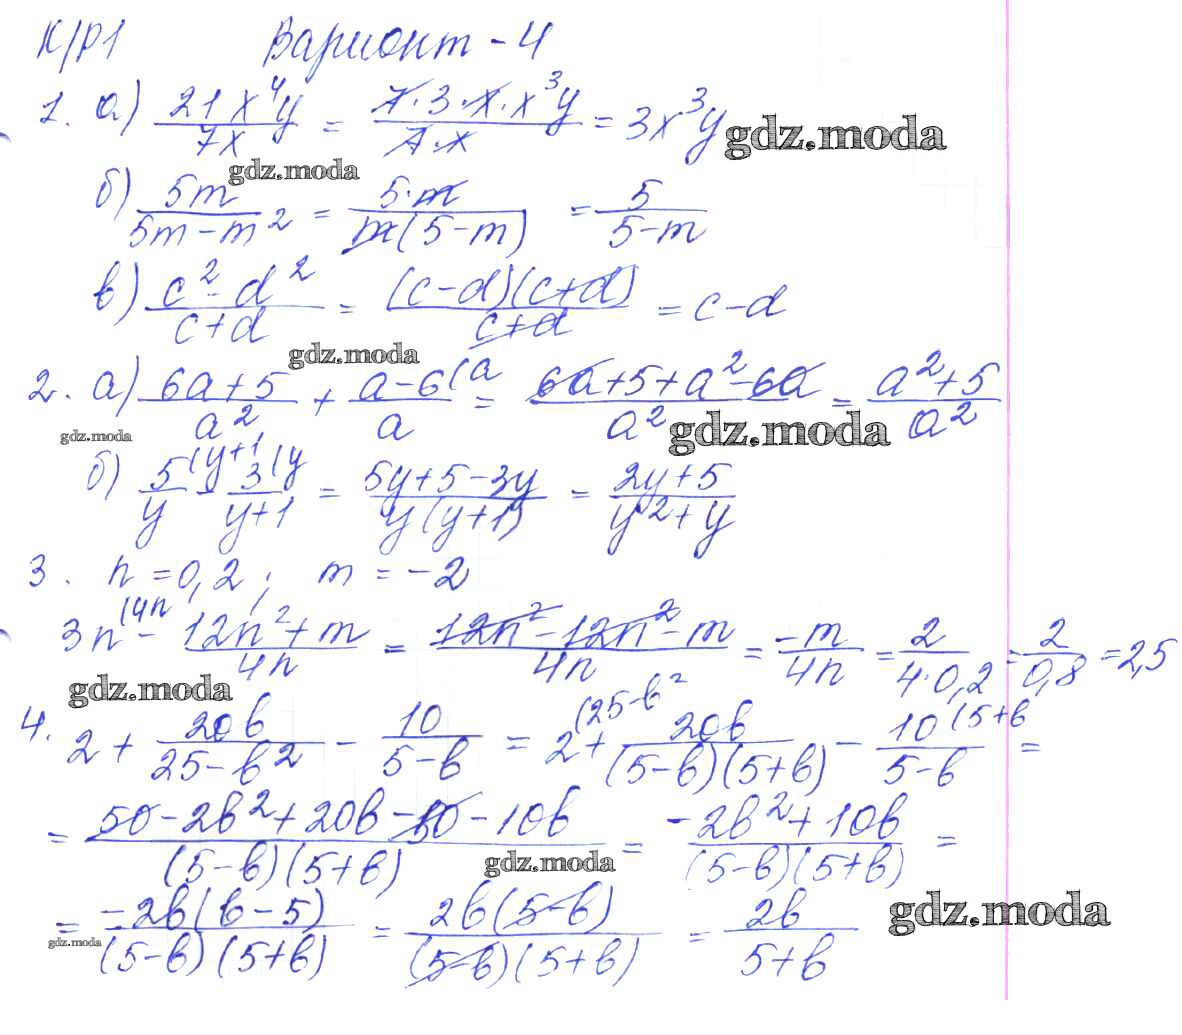 К/Р1 Вариант - 4
1. а) 21x⁴y / 7x = 7·3·x·x³y / 7·x = 3x³y gdz.moda
gdz.moda
б) 5m / 5m-m² = 5·m / m(5-m) = 5 / 5-m
в) c²-d² / c+d = (c-d)(c+d) / c+d = c-d
gdz.moda
2. а) 6a+5 / a² + a-6(a / a = 6a+5+a²-6a / a² = a²+5 / a²
gdz.moda gdz.moda
б) 5(y+1 / y - 3(y / y+1 = 5y+5-3y / y(y+1) = 2y+5 / y²+y
3. n=0,2; m=-2
3n(4n - 12n²+m / 4n = 12n²-12n²-m / 4n = -m / 4n = 2 / 4·0,2 = 2 / 0,8 = 2,5
gdz.moda
4. 2 + 20b / 25-b² - 10 / 5-b = 2(25-b² + 20b / (5-b)(5+b) - 10(5+b / 5-b =
= 50-2b²+20b-50-10b / (5-b)(5+b) = -2b²+10b / (5-b)(5+b) =
gdz.moda
= -2b(b-5) / (5-b)(5+b) = 2b(5-b) / (5-b)(5+b) = 2b / 5+b gdz.moda
gdz.moda